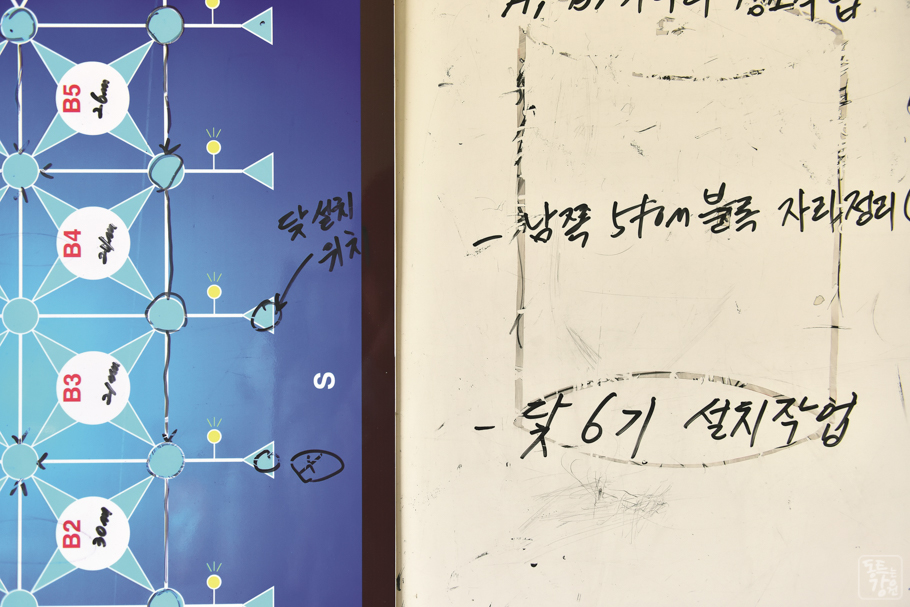 B5
26m
B4
24m
닻 설치
위치
B3
21m
S
B2
30m
작업
- 남쪽 블록 자리정리(
- 닻 6기 설치작업